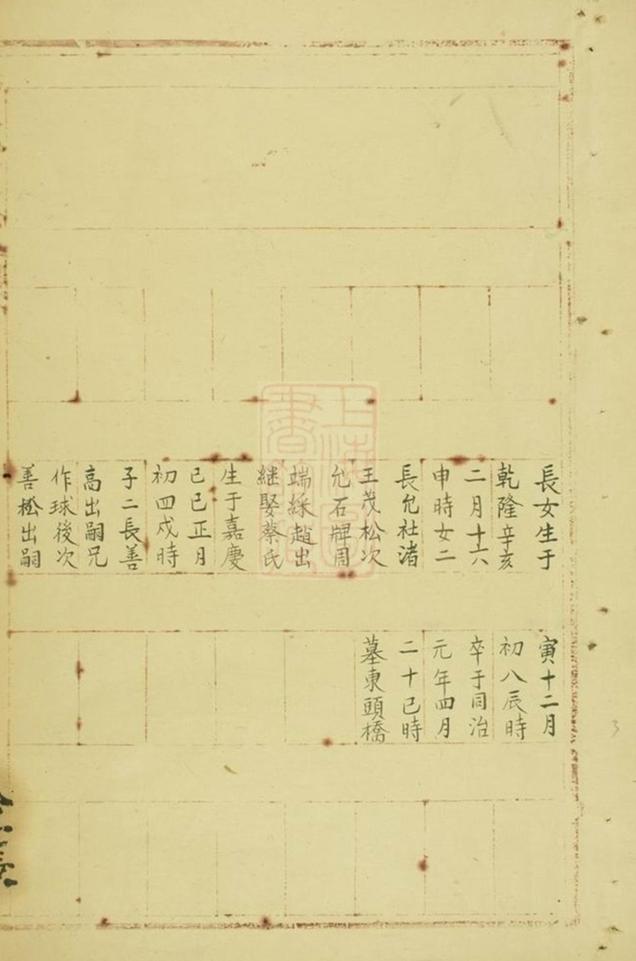 長女生于
乾隆辛亥
二月十六
申時女二
長允社渚
王茂松次
允石牌周
端綵趙出
継娶蔡氏
生于嘉慶
己巳正月
初四戍時
子二長善
高出嗣兄
作球後次
善松出嗣
寅十二月
初八辰時
卒于同治
元年四月
二十巳時
墓東頭橋